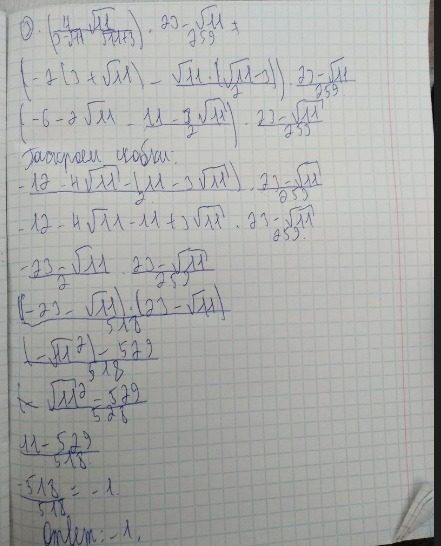 (4/(3-√11) - √11/(√11+3)) · (23-√11)/259 =
(-2(3+√11) - (√11·(√11-3))/2) · (23-√11)/259
(-6-2√11 - (11-3√11)/2) · (23-√11)/259
Раскроем скобки:
(-12-4√11-(11-3√11))/2 · (23-√11)/259
-12-4√11-11+3√11 · (23-√11)/259
(-23-√11)/2 · (23-√11)/259
((-23-√11)·(23-√11))/518
(-√11²)-529/518
(√11²-529)/528
(11-529)/518
-518/518 = -1
Ответ: -1.